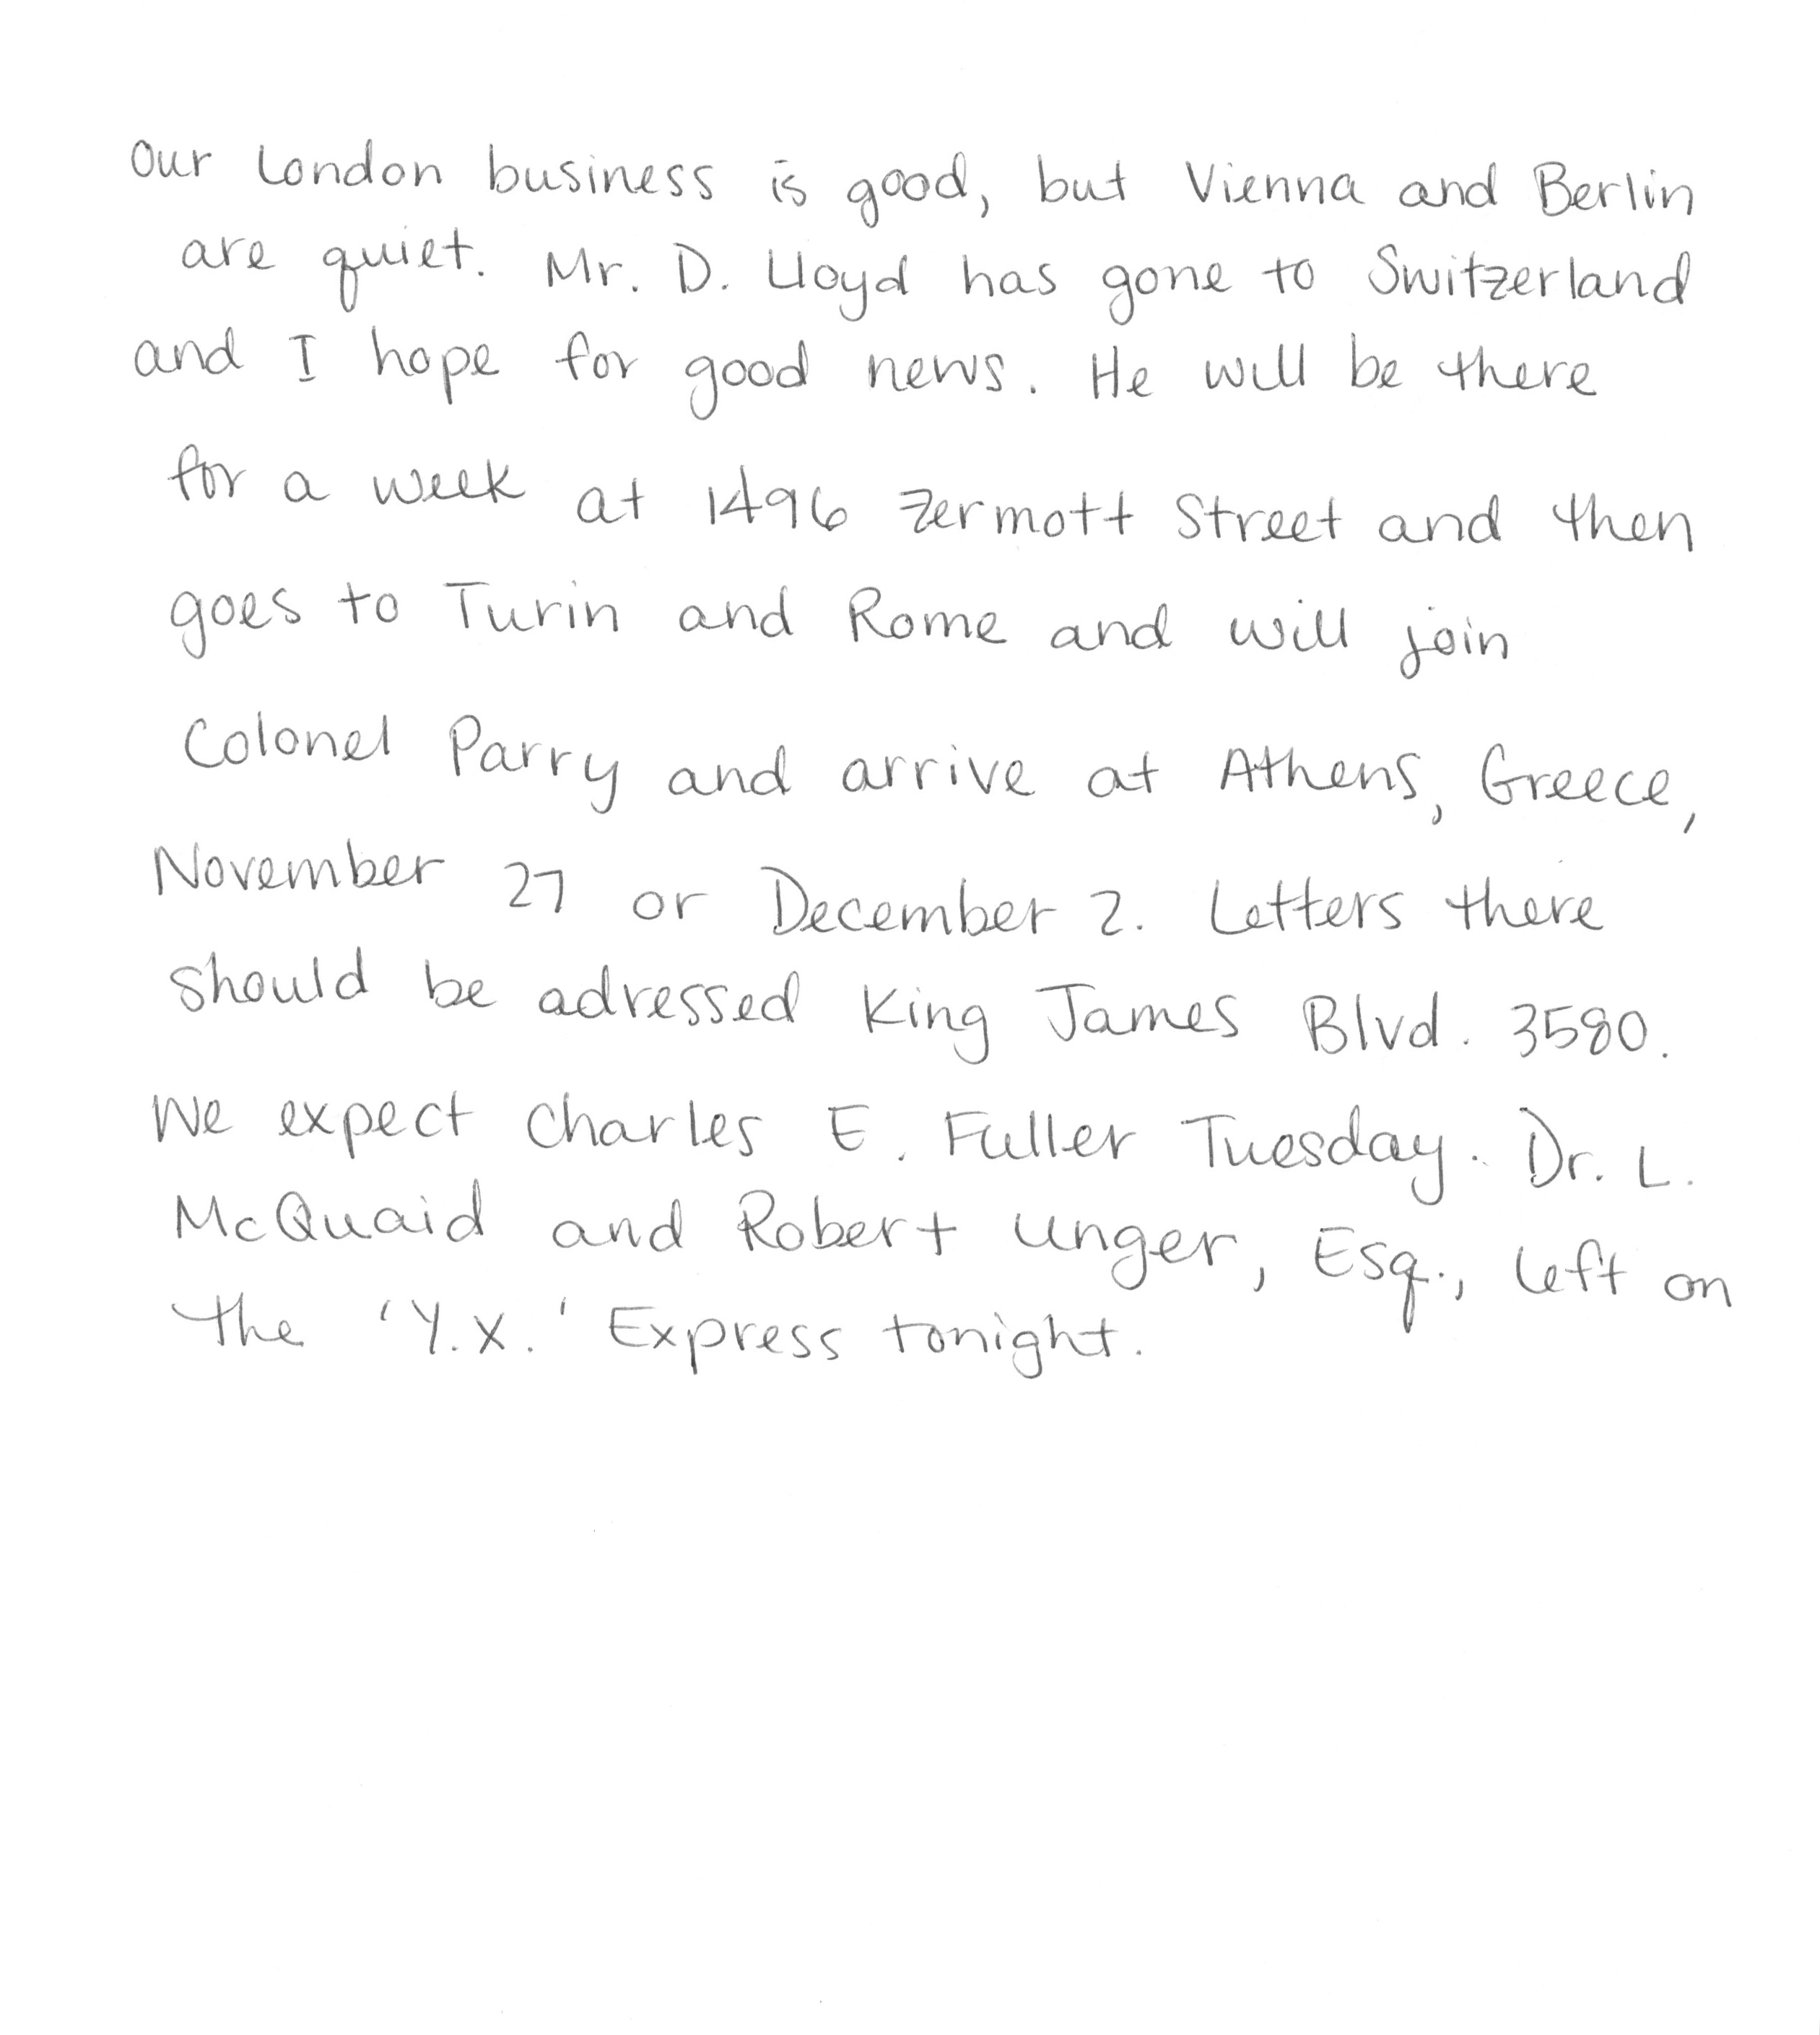 Our London business is good, but Vienna and Berlin
are quiet. Mr. D. Lloyd has gone to Switzerland
and I hope for good news. He will be there
for a week at 1496 Zermott Street and then
goes to Turin and Rome and will join
Colonel Parry and arrive at Athens, Greece,
November 27 or December 2. Letters there
should be adressed King James Blvd. 3580.
We expect Charles E. Fuller Tuesday. Dr. L.
McQuaid and Robert Unger, Esq., left on
the 'Y.X.' Express tonight.